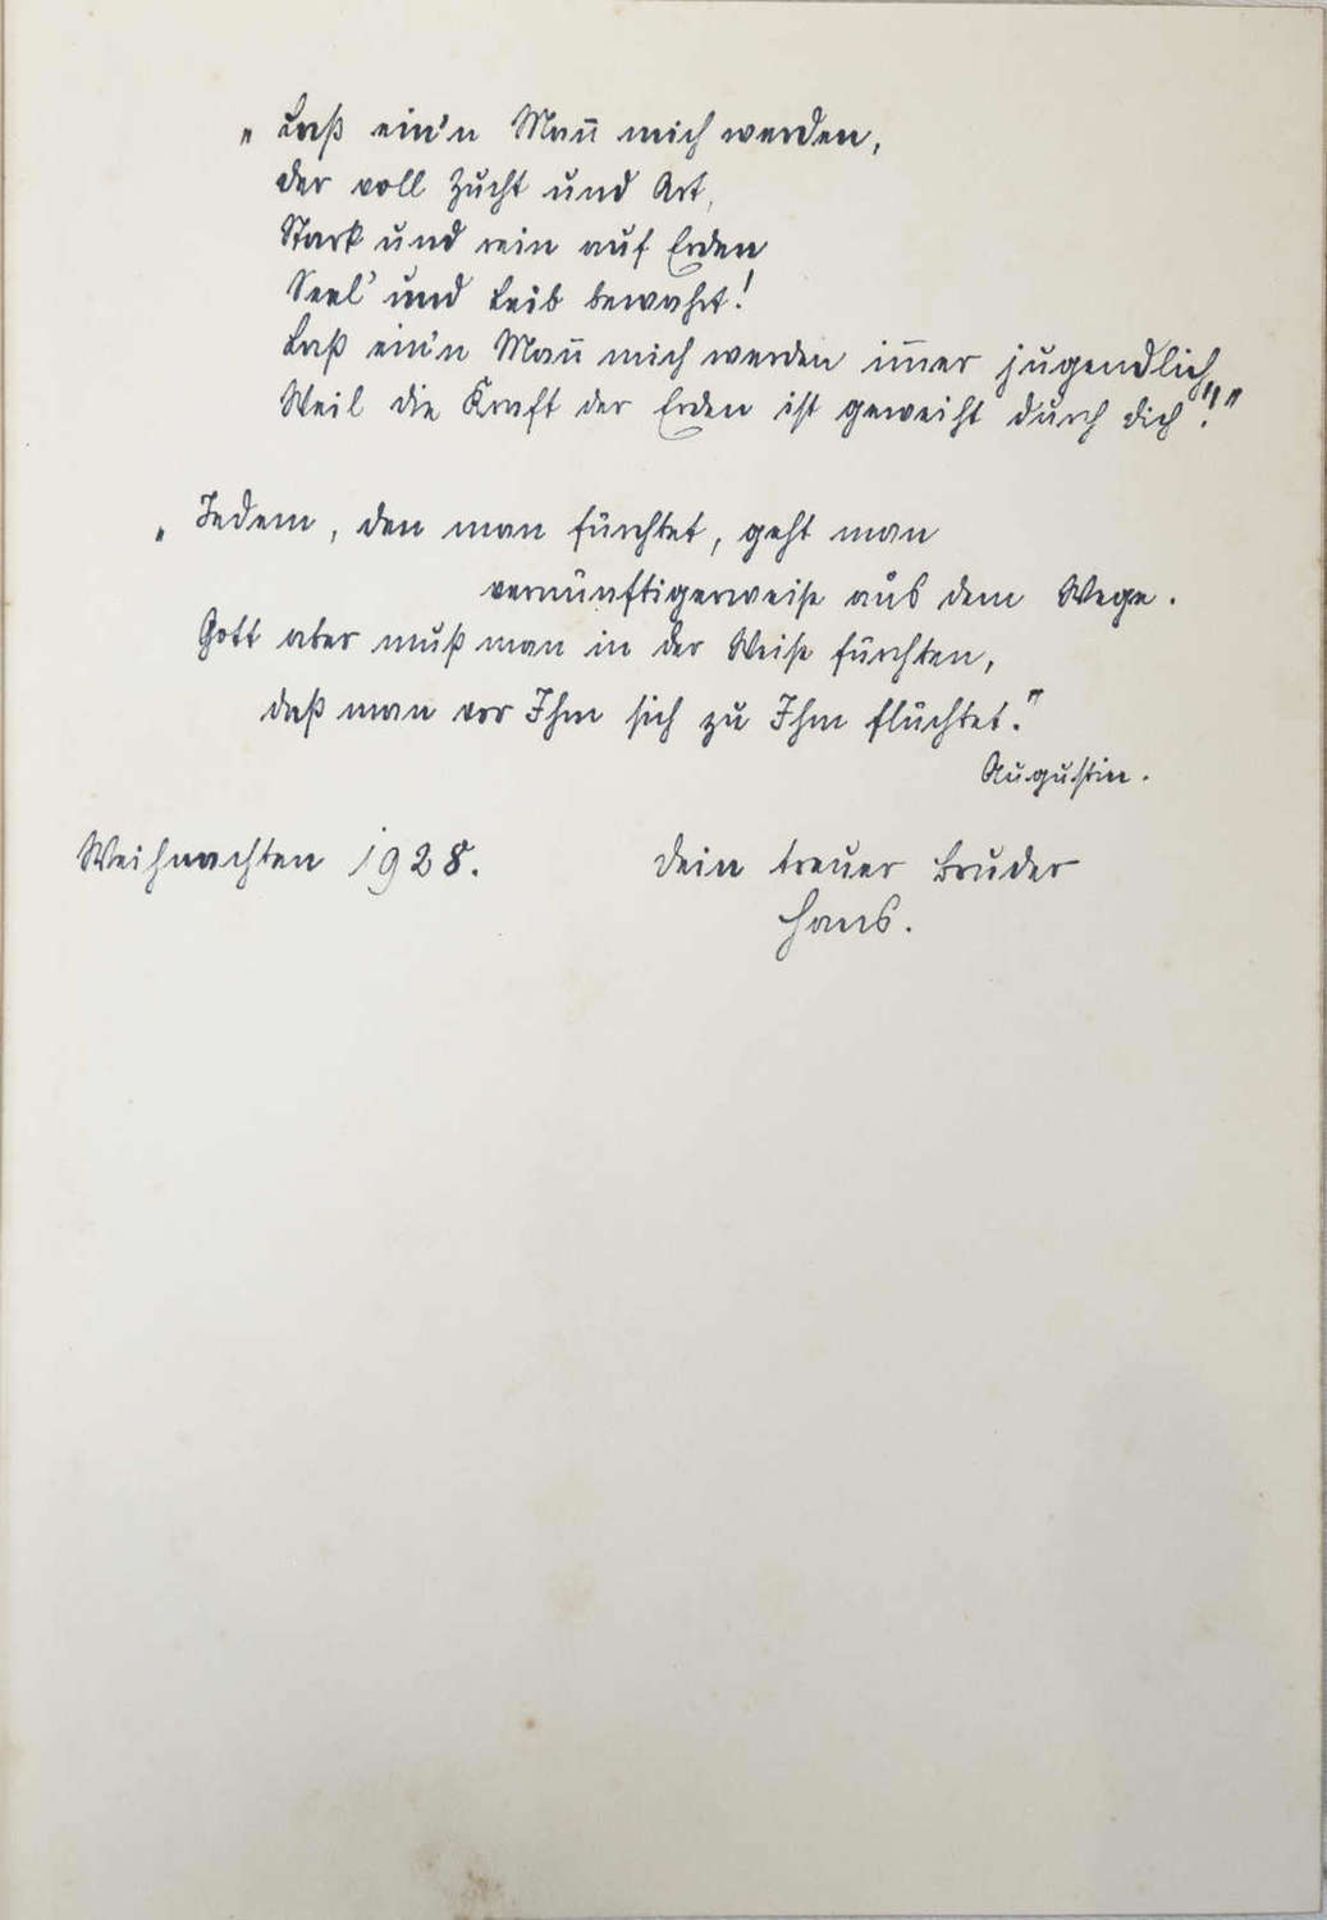 „Laß ein'n Man̄ mich werden,
der voll Zucht und Art,
Stark und rein auf Erden
Seel' und Leib bewahrt!
Laß ein'n Man̄ mich werden im̄er jugendlich,
Weil die Kraft der Erden ist geweiht durch dich!!"
„Jedem, den man fürchtet, geht man
vernünftigerweise aus dem Wege.
Gott aber muß man in der Weise fürchten,
daß man vor Ihm sich zu Ihm flüchtet."
Augustin.
Weihnachten 1928. Dein treuer Bruder
Hans.